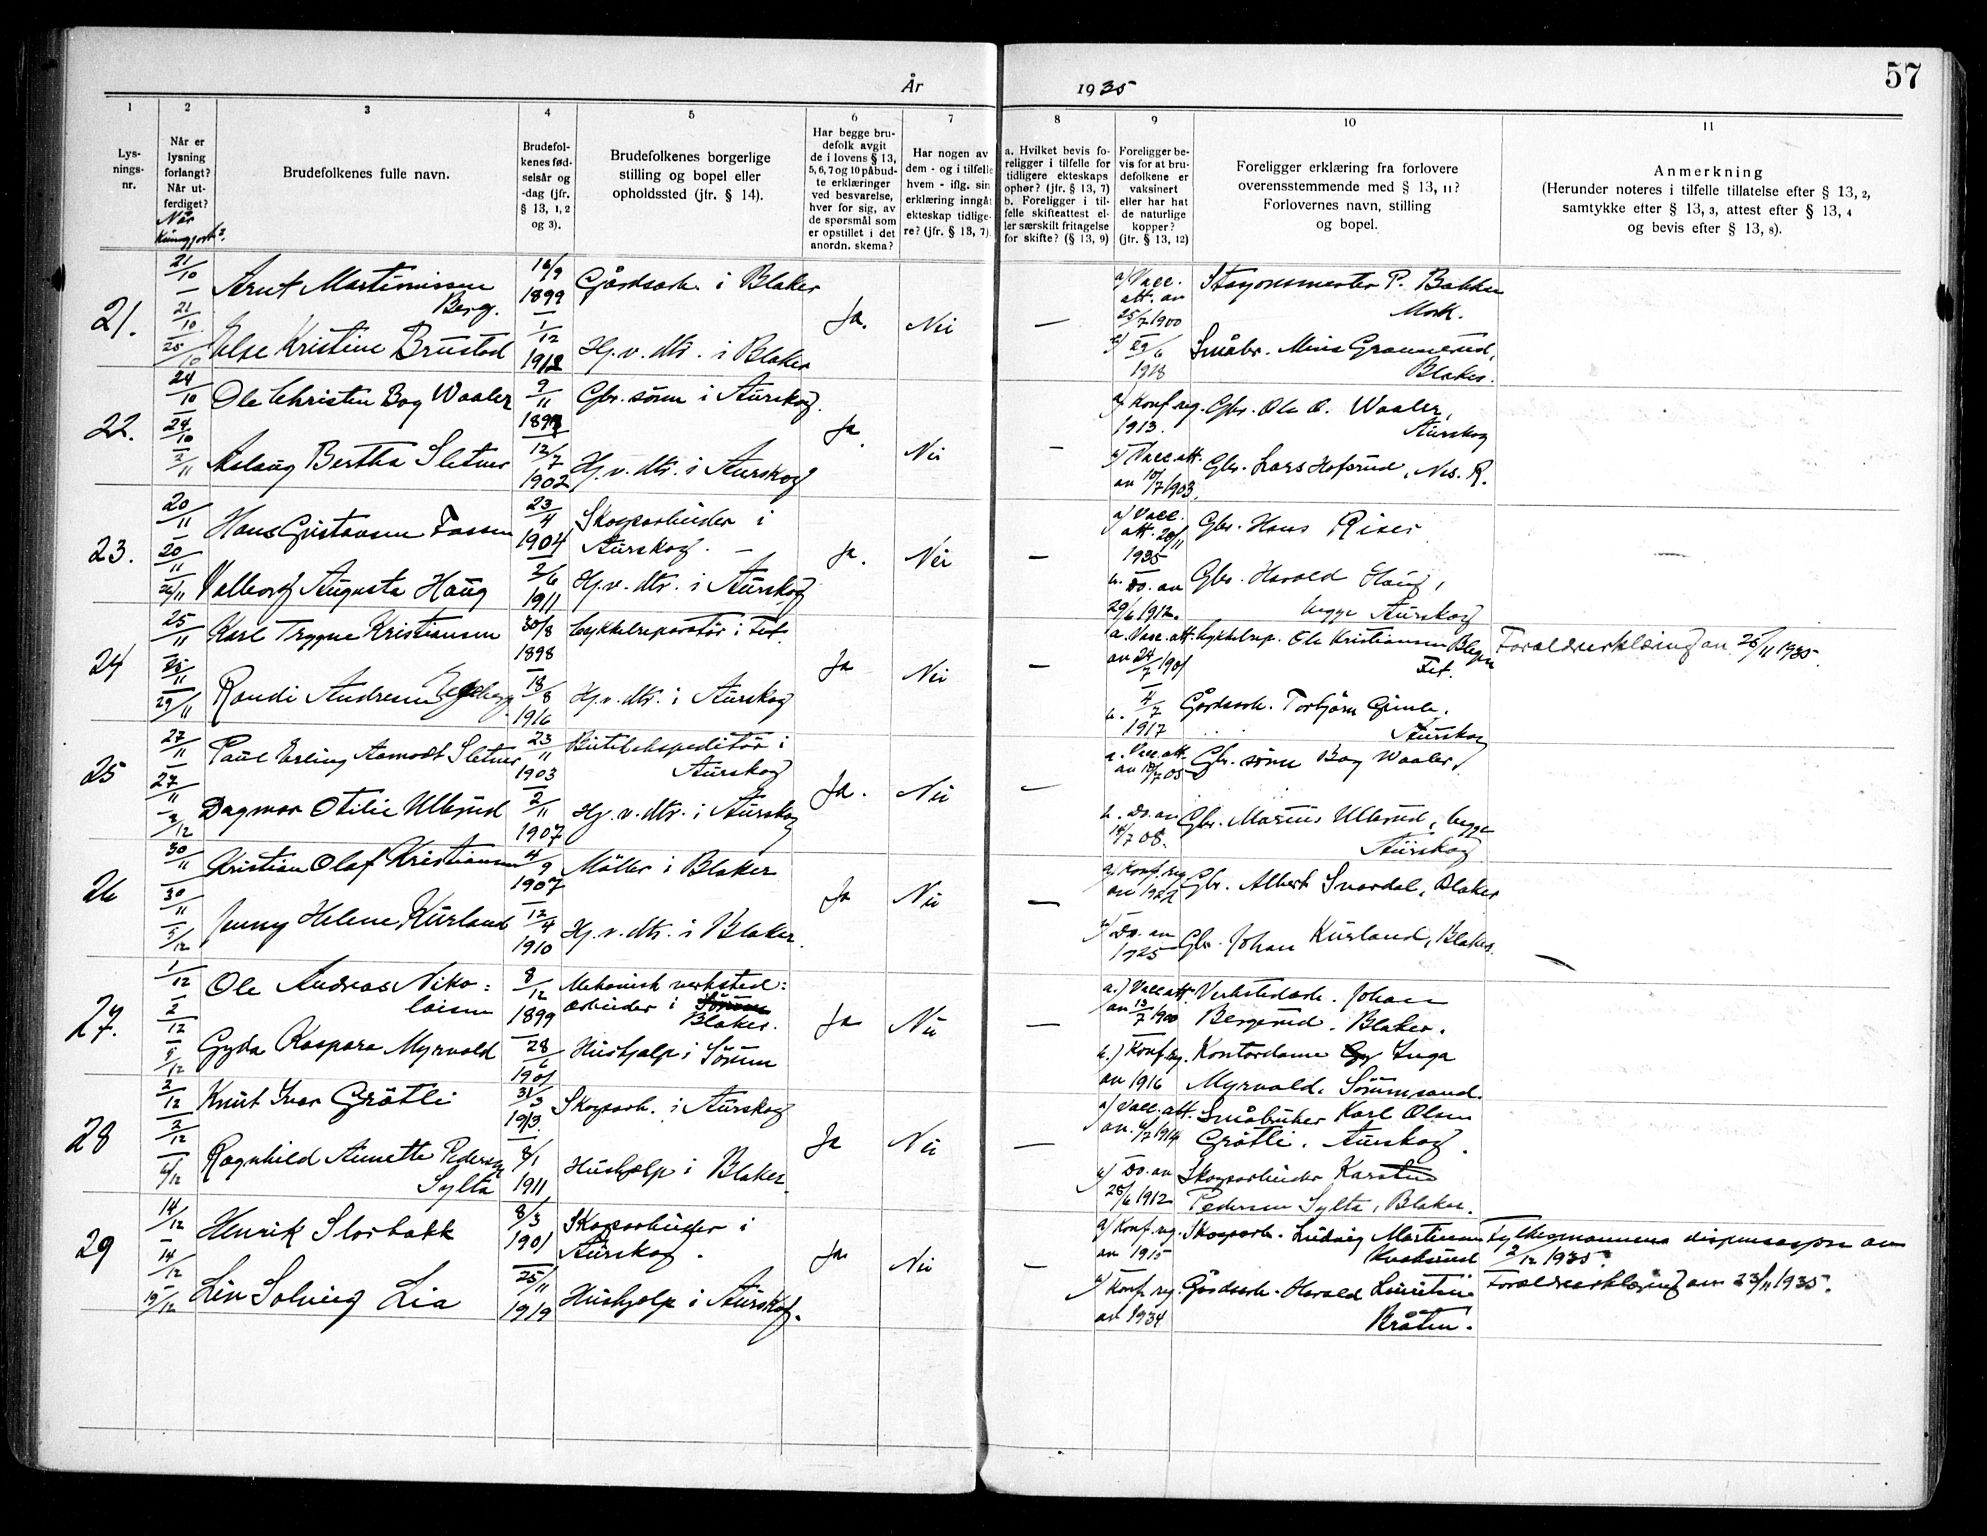 57
År 1935
1
2
3
4
5
6
7
8
9
10
11
Lys-
nings-
nr.
Når er
lysning
forlangt?
Når ut-
ferdiget?
Når
kunngjort?
Brudefolkenes fulle navn.
Brudefol-
kenes fød-
selsår og
-dag (jfr.
§ 13, 1, 2
og 3).
Brudefolkenes borgerlige
stilling og bopel eller
opholdssted (jfr. § 14).
Har begge bru-
defolk avgit
de i lovens § 13,
5, 6, 7 og 10 påbud-
te erklæringer
ved besvarelse,
hver for sig, av
de spørsmål som
er opstillet i det
anordn. skema?
Har nogen av
dem - og i tilfelle
hvem - iflg. sin
erklæring inngåt
ekteskap tidlige-
re? (jfr. § 13, 7).
a. Hvilket bevis fo-
religger i tilfelle for
tidligere ekteskaps
ophør? (jfr. § 13, 7)
b. Foreligger i til-
felle skifteattest el-
ler særskilt fritagelse
for skifte? (§ 13, 9)
Foreligger be-
vis for at bru-
defolkene er
vaksinert
eller har hat
de naturlige
kopper?
(jfr. § 13, 12)
Foreligger erklæring fra forlovere
overensstemmende med § 13, 11?
Forlovernes navn, stilling
og bopel.
Anmerkning
(Herunder noteres i tilfelle tillatelse efter § 13, 2,
samtykke efter § 13, 3, attest efter § 13, 4
og bevis efter § 13, 8).
21.
21/10
21/10
25/10
Arnt Martinnissen
Berg.
16/9
1899
Gårdsarb. i Blaker
Else Kristine Brustad
1/12
1912
Hj.v. dtr. i Blaker
Ja.
Nei
—
a) Vacc.
att. av
25/7 1900
Stasjonsmester P. Bakken
Mork.
b) 29/6
1918
Småbr. Grønnerud,
Blaker.
22.
24/10
24/10
2/11
Ole Christen Bog Waaler
9/11
Gbr. sønn i Aurskog.
Aslaug Bertha Sletner
12/7
1902
Hj.v. dtr. i Aurskog
Ja.
Nei
—
a) Konf. reg.
1913.
Gbr. Ole O. Waaler,
Aurskog
b) Vacc. att.
av 10/7 1903.
Gbr. Lars Hofsrud, Nes. R.
23.
20/11
20/11
Hans Gustavsen Fossen
23/4
1904
Skogsarbeider i
Aurskog. —
Valborg Augusta Haug
2/6
1911
Hj.v. dtr. i Aurskog
Ja.
Nei
—
a) Vacc.
att. 20/11
1935
Gbr. Hans Riser
b. Do. av
29/6 1912.
Gbr. Harald Haug,
begge Aurskog
24
25/11
25/11
29/11
Karl Trygve Kristiansen
30/8
1898
Cykkelreparatør i Fet.
Randi Andresen
18/8
1916
Hj.v. dtr. i Aurskog
Ja
Nei
—
a. Vacc. att.
av 24/7 1901
Cykkelrep. Ole Kristiansen
Fet.
b. 4/7
1917
Gårdsarb. Torbjørn Gimle.
Aurskog
Foreldreerklæring av 25/11 1935.
25
27/11
27/11
2/12
Paul Erling Aamodt Sletner
23/11
1903
Bilekspeditør i
Aurskog
Dagmar Otilie Ullerud
2/11
1907
Hj.v. dtr. i Aurskog
Ja.
Nei
—
a. Vacc. att.
av 18/7 05
Gbr. sønn Bog Waaler,
b. Do. av
14/7 08.
Gbr. Marius Ullerud, begge
Aurskog
26
30/11
30/11
5/12
Kristian Olaf Kristiansen
4/9
1907
Møller i Blaker
Jenny Helene Kurland
12/4
1910
Hj.v. dtr. i Blaker.
Ja
Nei
—
a) Konf. reg.
av 1922
Gbr. Albert Svardal, Blaker
b) Do. av
1925
Gbr. Johan Kurland, Blaker.
27.
1/12
2/12
5/12
Ole Andreas Niko=
laisen
8/12
1899
Mekanisk verksted=
arbeider i Sørum
Blaker.
Gyda Kaspara Myrvold
28/6
1901
Hushjelp i Sørum
Ja
Nei
—
a.) Vacc. att.
av 13/7 1900
Verkstedarb. Johan
Bergerud. Blaker.
b.) Konf. reg.
av 1916
Kontordame Gy Inga
Myrvold. Sørumsand.
28
2/12
2/12
6/12
Knut Ivar Grøtli
31/3
1913.
Skogsarb. i Aurskog
Ragnhild Annette Pedersen
Sylta
8/1
1911
Hushjelp i Blaker.
Ja
Nei
—
a) Vacc. att.
av. 6/7 1914
Småbruker Karl Olsen
Grøtli. Aurskog.
b) Do. av
28/6 1912
Skogsarbeider Karsten
Pedersen Sylta, Blaker.
29
14/12
14/12
19/12
Henrik Storbakk
8/3
1901
Skogsarbeider i
Aurskog.
Liv Solveig Lia
25/11
1919
Hushjelp i Aurskog.
Ja
Nei
—
a) Konf. reg.
av 1915
Skogsarb. Ludvig Martinsen
b) Konf. reg.
av 1934
Gårdsarb. Harald
Bråten.
Fylkesmannens dispensasjon av
2/12 1935.
Foreldreerklæring av 23/11 1935.